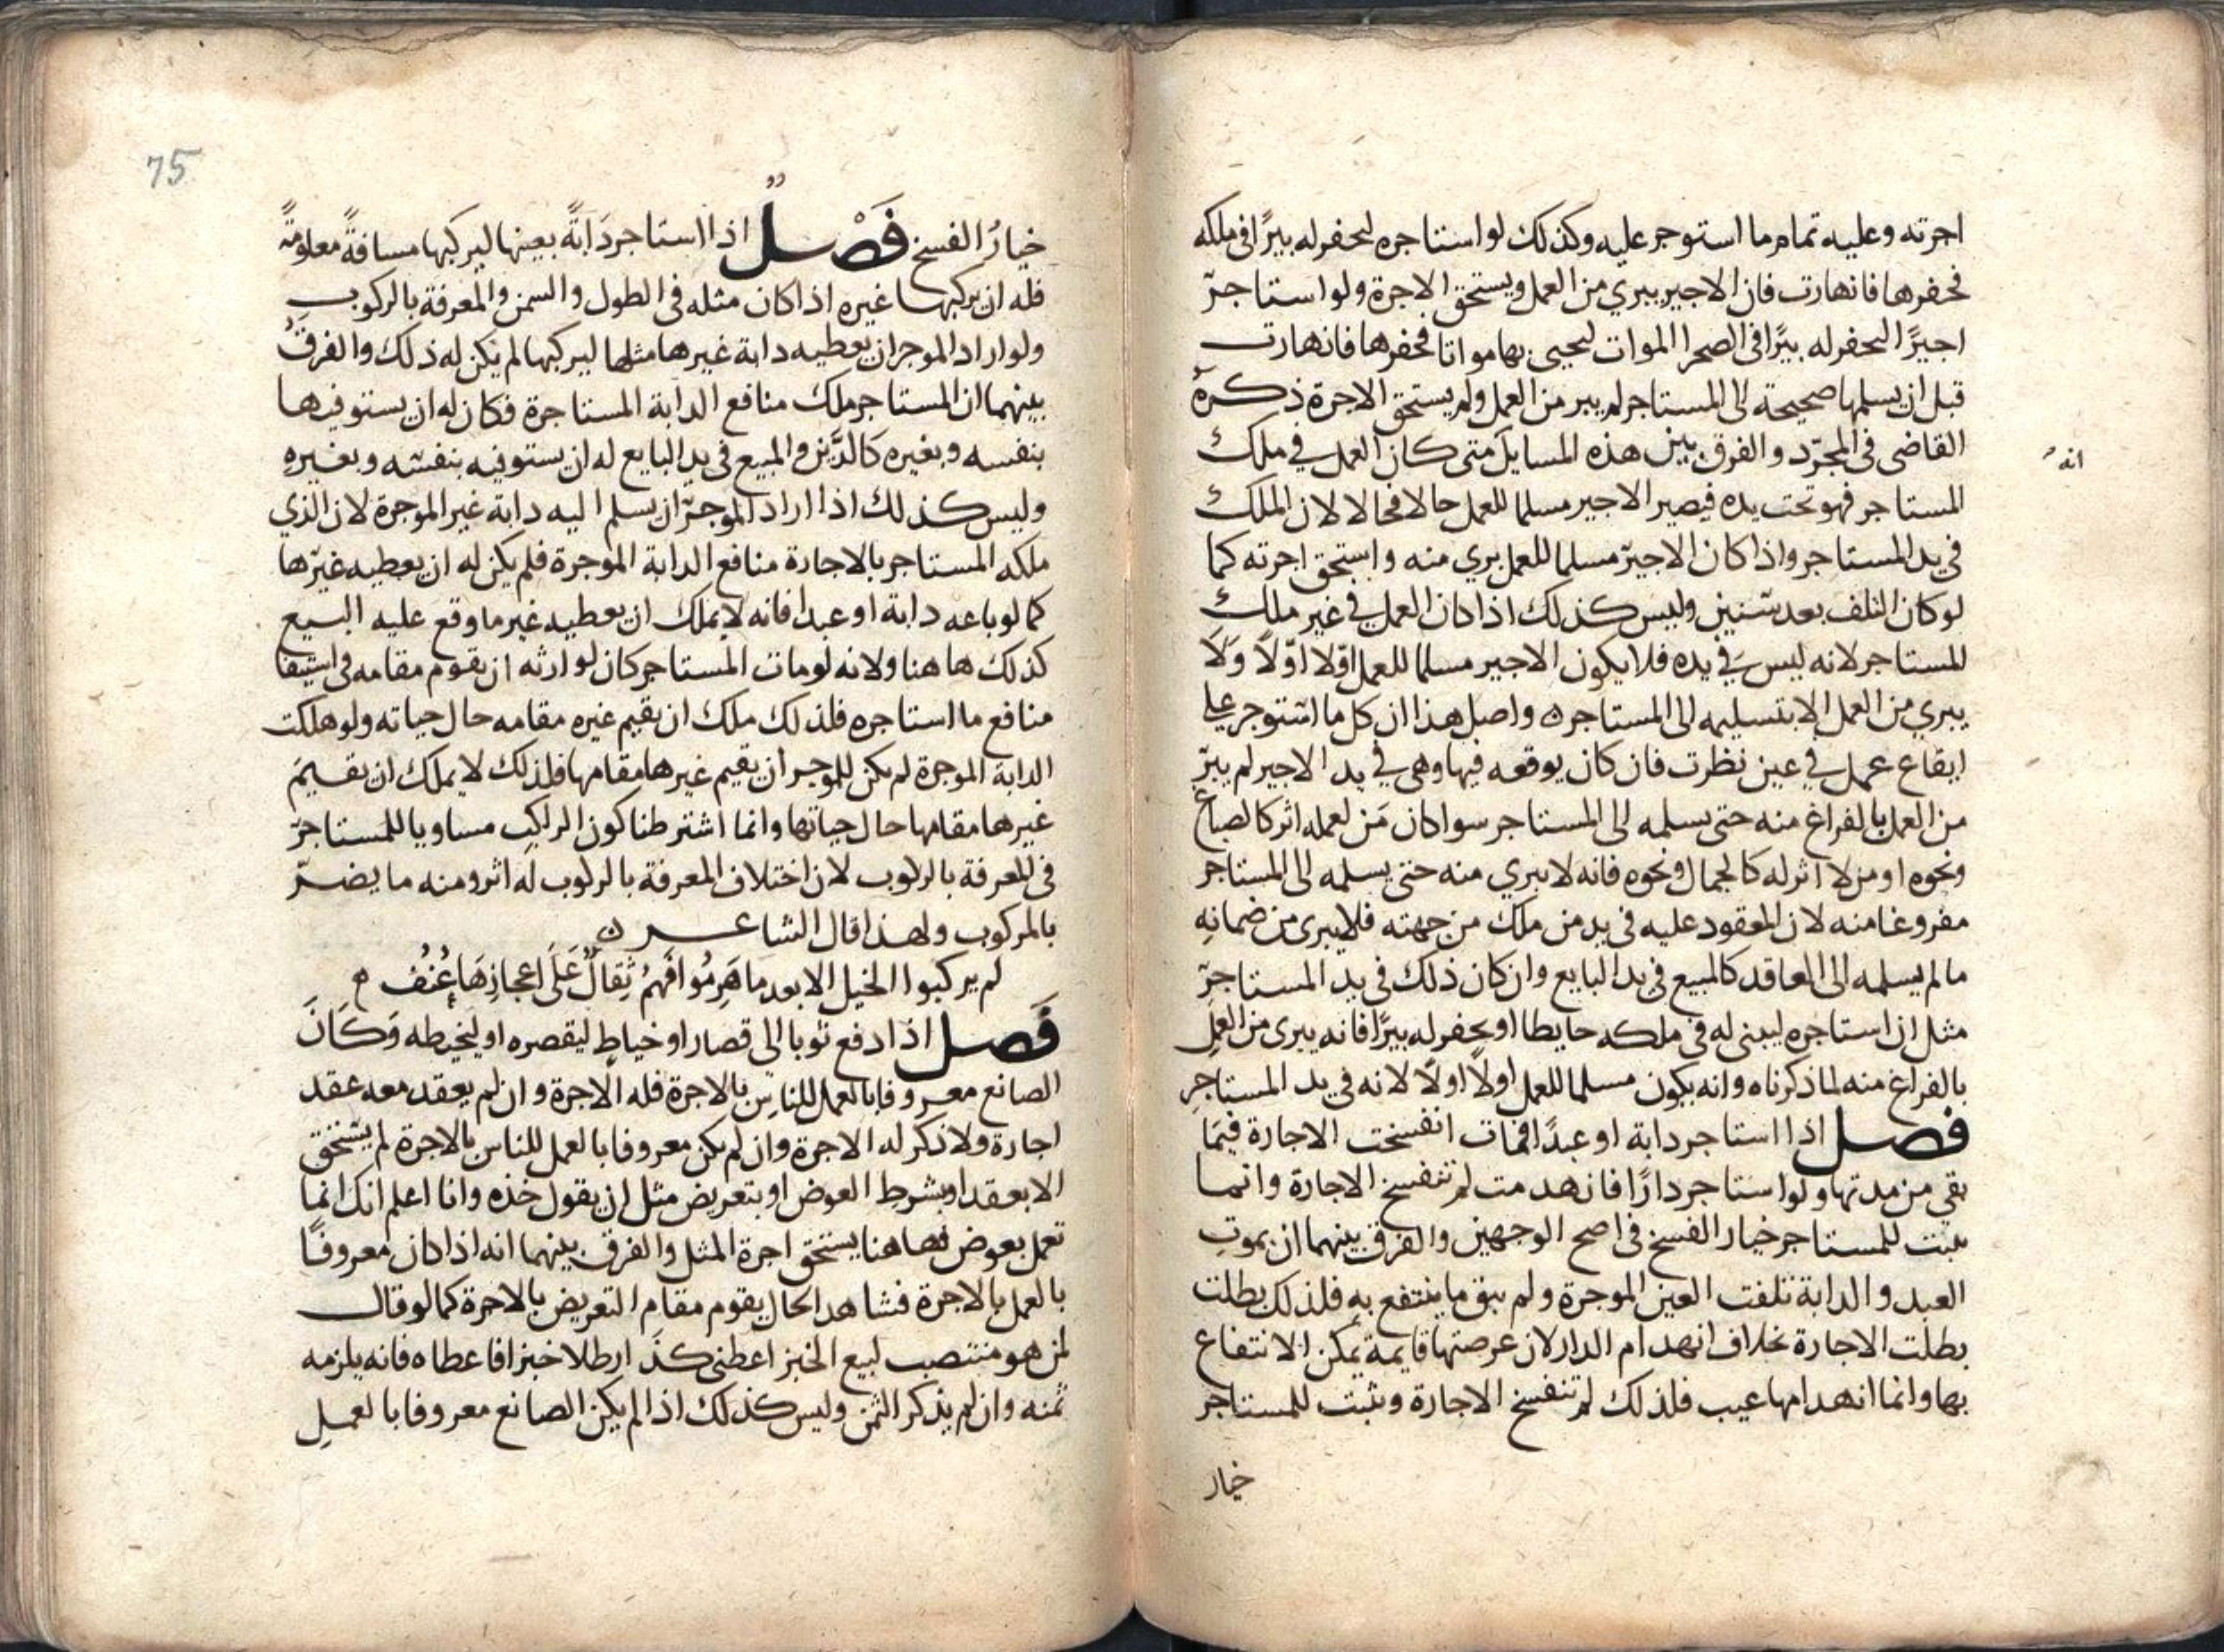 اجرته وعليه تمام ما استوجر عليه وكذلك لو استاجره ليحفر له بيرًا في ملكه
فحفرها فانهارت فان الاجير يبري من العمل ويستحق الاجرة ولو استاجر
اجيرًا ليحفر له بيرًا في الصحرا الموات ليحيي بها مواتا فحفرها فانهارت
قبل ان يسلمها صحيحة الى المستاجر لم يبر من العمل ولم يستحق الاجرة ذكره
القاضي في المجرّد والفرق بين هذه المسايل متى كان العمل في ملك
انه
المستاجر فهو تحت يده فيصير الاجير مسلما للعمل حالا فحالا لان الملك
في يد المستاجر واذا كان الاجير مسلما للعمل بري منه واستحق اجرته كما
لو كان التلف بعد سنين وليس كذلك اذا كان العمل في غير ملك
المستاجر لانه ليس في يده فلا يكون الاجير مسلما للعمل اوّلا اوّلاً ولا
يبري من العمل الا بتسليمه الى المستاجر ه واصل هذا ان كل ما استوجر على
ايقاع عمل في عين نظرت فان كان يوقعه فيها وهي في يد الاجير لم يبرَ
من العمل بالفراغ منه حتى يسلمه الى المستاجر سوا كان مَن لعمله اثر كالصباغ
ونحوه او من لا اثر له كالجمال ونحوه فانه لا يبري منه حتى يسلمه الى المستاجر
مفروغا منه لان المعقود عليه في يد من ملك من جهته فلا يبرى من ضمانه
ما لم يسلمه الى العاقد كالمبيع في يد البايع وان كان ذلك في يد المستاجر
مثل ان استاجره ليبني له في ملكه حايطا او يحفر له بيرًا فانه يبرى من العمل
بالفراغ منه لما ذكرناه وانه يكون مسلما للعمل اولاً اولاً لانه في يد المستاجرِ
فصل اذا استاجر دابة او عبدًا فمات انفسخت الاجارة فيمَا
بقي من مدتها ولو استاجر دارًا فانهدمت لم تنفسخ الاجارة وانما
يثبت للمستاجر خيار الفسخ في اصح الوجهين والفرق بينهما ان بموتِ
العبد والدابة تلفت العين الموجرة ولم يبق ما ينتفع به فلذلك بطلت
بطلت الاجارة بخلاف انهدام الدار لان عرصتها قايمة يمكن الانتفاع
بها وانما انهدامها عيب فلذلك لم تنفسخ الاجارة ويثبت للمستاجر
خيار
75
خيارُ الفسخ فَصْلٌ اذا استاجر دَابَةً بعينها ليركبها مسافةً معلومةً
فله ان يركبها غيره اذا كان مثله في الطول والسمن والمعرفة بالركوب
ولو اراد الموجر ان يعطيه دابة غيرها مثلها ليركبها لم يكن له ذلك والفرقُ
بينهما ان المستاجر ملك منافع الدابة المستاجرة فكان له ان يستوفيها
بنفسه وبغيره كالدَّين والمبيع في يد البايع له ان يستوفيه بنفسه وبغيرهِ
وليس كذلك اذا اراد الموجر ان يسلم اليه دابة غير الموجرة لان الذي
ملكه المستاجر بالاجارة منافع الدابة الموجرة فلم يكن له ان يعطيه غيرها
كما لو باعه دابة او عبدا فانه لا يملك ان يعطيه غير ما وقع عليه البيع
كذلك هاهنا ولانه لو مات المستاجر كان لوارثه ان يقوم مقامه في استيفا
منافع ما استاجره فلذلك ملك ان يقيم غيره مقامه حال حياته ولو هلكت
الدابة الموجرة لم يكن للموجر ان يقيم غيرها مقامها فلذلك لا يملك ان يقيمَ
غيرها مقامها حال حياتها وانما اشترطنا كون الراكب مساويا للمستاجر
في المعرفة بالركوب لان اختلاف المعرفة بالركوب له اثر ومنه ما يضرّ
بالمركوب ولهذا قال الشاعر ن
لم يركبوا الخيل الا بعد ما هَرِمُوا فَهُمُ ثِقالٌ عَلَى اعجازِهَا عُنُفُ ه
فَصل اذا دفع ثوبا الى قصار او خياطٍ ليقصره او ليخيطه وَكَانَ
الصانع معروفا بالعمل للناس بالاجرة فله الاجرة وان لم يعقد معه عقد
اجارة ولا ذكر له الاجرة وان لم يكن معروفا بالعمل للناس بالاجرة لم يستحق
الا بعقد او بشرط العوض او بتعريض مثل ان يقول خذه وانا اعلم انك انما
تعمل بعوض فهاهنا يستحق اجرة المثل والفرق بينهما انه اذا كان معروفًا
بالعمل بالاجرة فشاهد الحال يقوم مقام التعريض بالاجرة كما لو قال
لمن هو منتصب لبيع الخبز اعطني كذا رطلا خبزا فاعطاه فانه يلزمه
ثمنه وان لم يذكر الثمن وليس كذلك اذا لم يكن الصانع معروفا بالعملِ